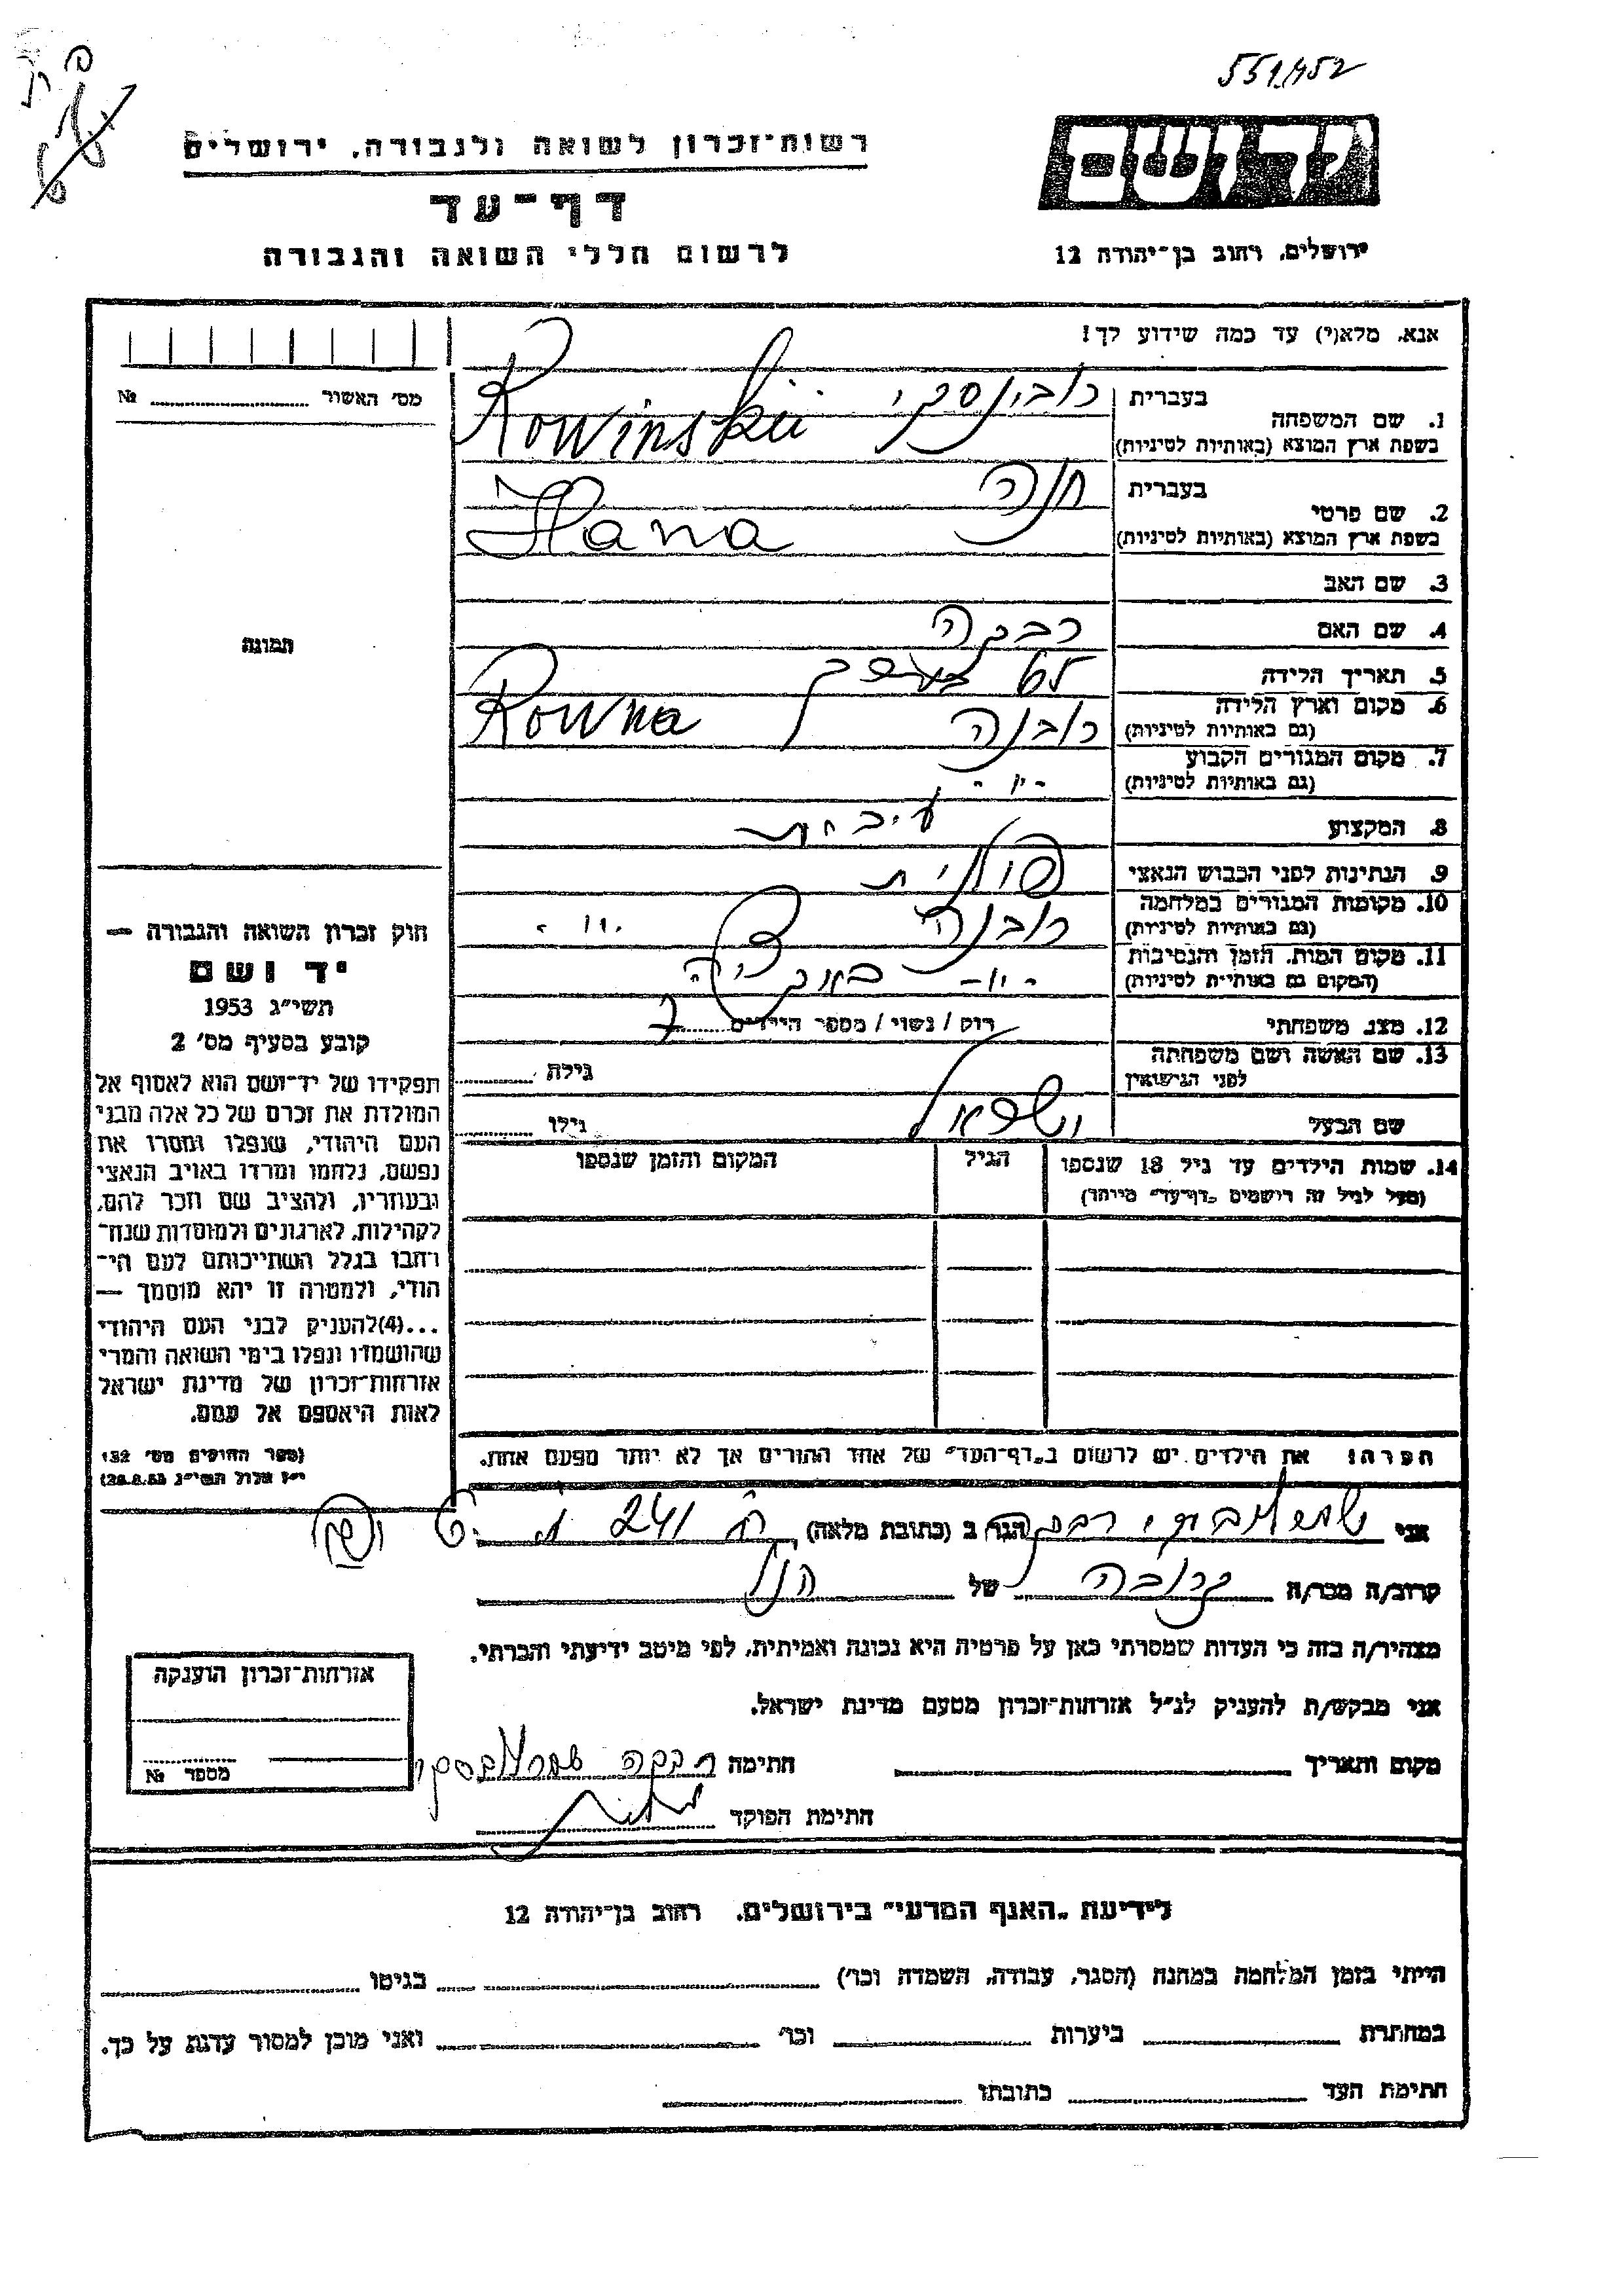 551/452
רשות־זכרון לשואה ולגבורה, ירושלים
דף־עד
לרשום חללי השואה והגבורה
ידושם
ירושלים, רחוב בן־יהודה 12
אנא, מלא(י) עד כמה שידוע לך!
מס׳ האשור № ........
1. שם המשפחה בעברית רובינסקי
בשפת ארץ המוצא (באותיות לטיניות) Rowinskii
2. שם פרטי בעברית חנה
בשפת ארץ המוצא (באותיות לטיניות) Hana
3. שם האב
4. שם האם רבקה
5. תאריך הלידה 65 בערך
6. מקום וארץ הלידה (גם באותיות לטיניות) רובנה Rowna
7. מקום המגורים הקבוע (גם באותיות לטיניות) -״-
8. המקצוע
9. הנתינות לפני הכבוש הנאצי פולנית
10. מקומות המגורים במלחמה (גם באותיות לטיניות) רובנה -״-
11. מקום המות, הזמן והנסיבות (המקום גם באותיות לטיניות) -״-
12. מצב משפחתי רוק / נשוי / מספר הילדים 7
13. שם האשה ושם משפחתה לפני הנישואין גילה
שם הבעל גילו
14. שמות הילדים עד גיל 18 שנספו הגיל המקום והזמן שנספו
(מעל לגיל זה רושמים „דף־עד״ מיוחד)
הערה: את הילדים יש לרשום ב„דף־העד״ של אחד ההורים אך לא יותר מפעם אחת.
תמונה
חוק זכרון השואה והגבורה —
יד ושם
תשי״ג 1953
קובע בסעיף מס׳ 2
תפקידו של יד־ושם הוא לאסוף אל
המולדת את זכרם של כל אלה מבני
העם היהודי, שנפלו ומסרו את
נפשם, נלחמו ומרדו באויב הנאצי
ובעוזריו, ולהציב שם וזכר להם,
לקהילות, לארגונים ולמוסדות שנח־
רחבו בגלל השתייכותם לעם הי־
הודי, ולמטרה זו יהא מוסמך —
...(4)להעניק לבני העם היהודי
שהושמדו ונפלו בימי השואה והמרי
אזרחות־זכרון של מדינת ישראל
לאות היאספם אל עמם.
(ספר החוקים מס׳ 132,
י״ז אלול תשי״ג 28.8.53)
אני רבקה הגר ב (כתובת מלאה) 241
קרוב/ה מכר/ה קרובה של הנ״ל
מצהיר/ה בזה כי העדות שמסרתי כאן על פרטיה היא נכונה ואמיתית, לפי מיטב ידיעתי והכרתי.
אני מבקש/ת להעניק לנ״ל אזרחות־זכרון מטעם מדינת ישראל.
מקום ותאריך חתימה רבקה
חתימת הפוקד
אזרחות־זכרון הוענקה
מספר №
לידיעת „האגף המדעי״ בירושלים. רחוב בן־יהודה 12
הייתי בזמן המלחמה במחנה (הסגר, עבודה, השמדה וכו׳) בגיטו
במחתרת ביערות וכו׳ ואני מוכן למסור עדות על כך.
חתימת העד כתובתו